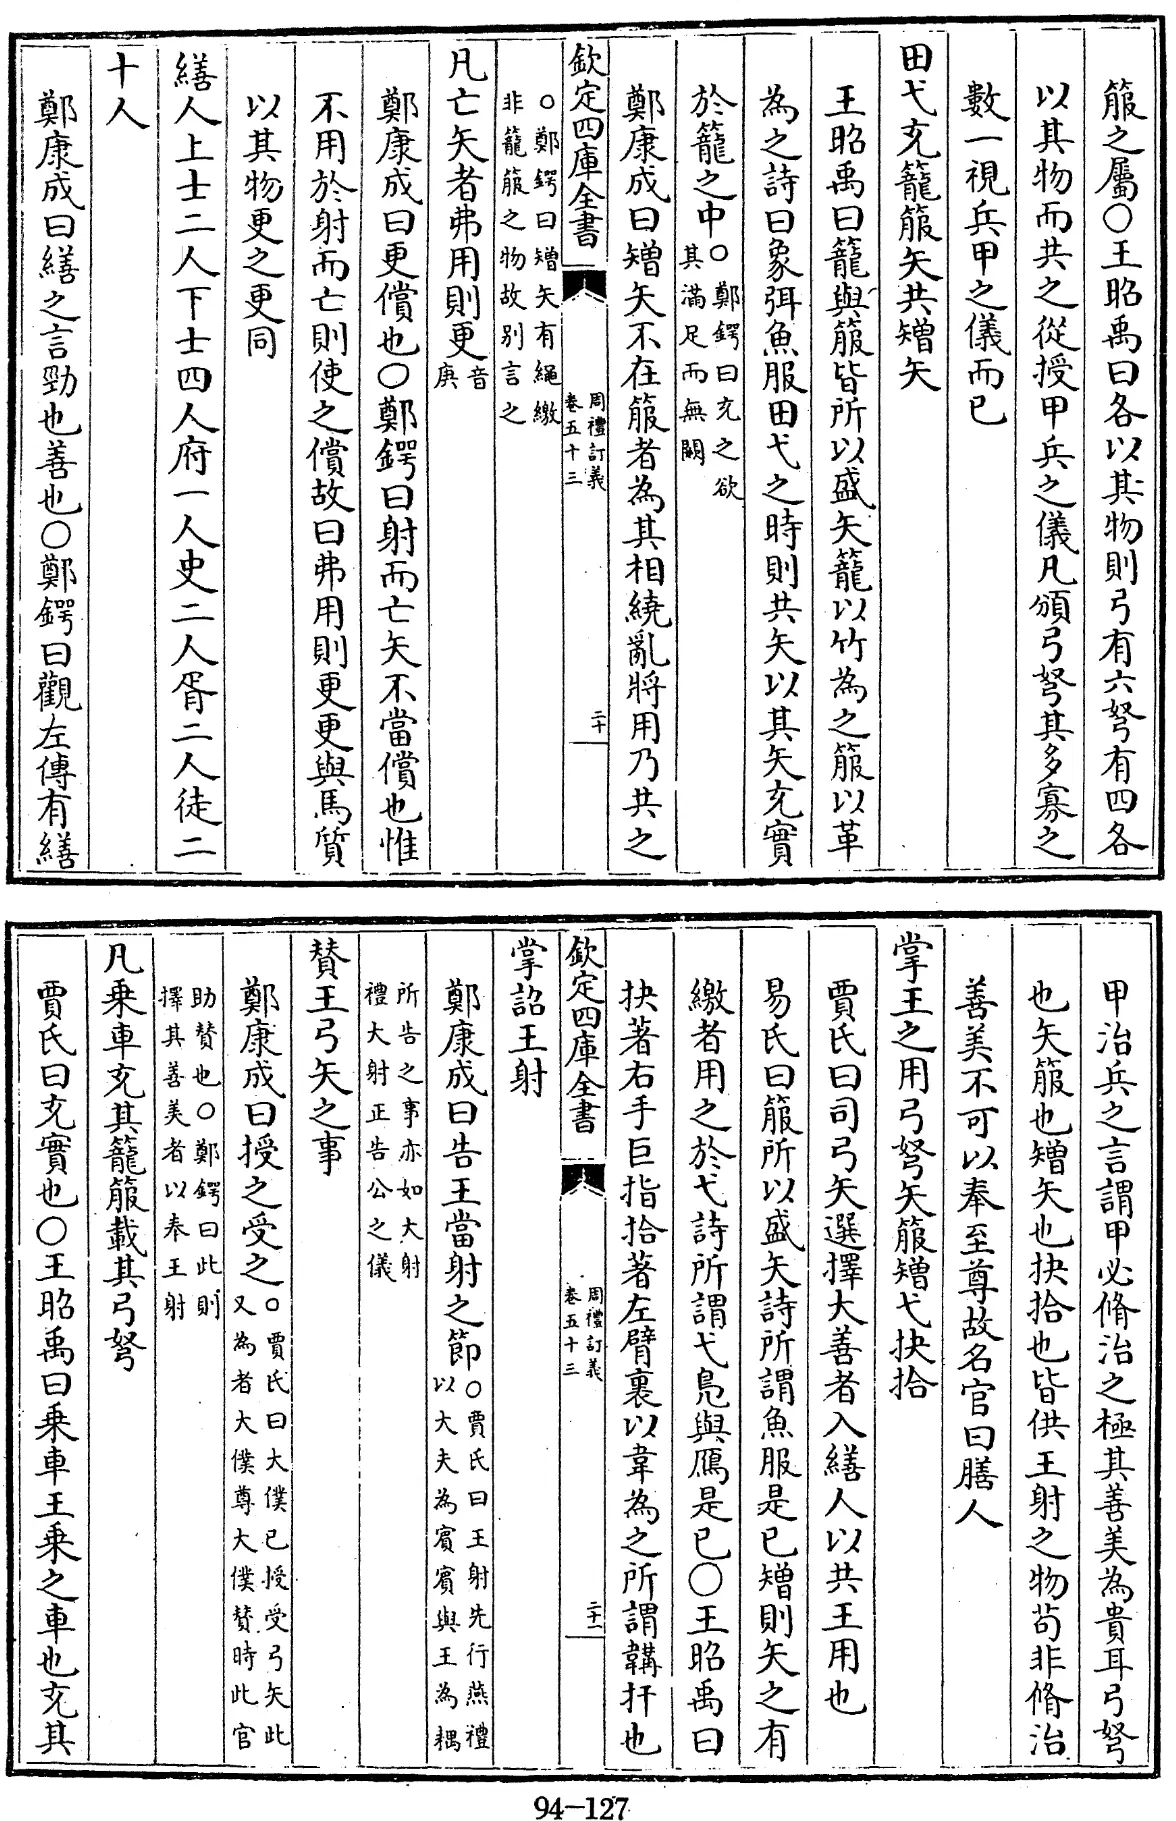 箙之屬○王昭禹曰各以其物則弓有六弩有四各
以其物而共之從授甲兵之儀凡頒弓弩其多寡之
數一視兵甲之儀而已
田弋充籠箙矢共矰矢
王昭禹曰籠與箙皆所以盛矢籠以竹為之箙以革
為之詩曰象弭魚服田弋之時則共矢以其矢充實
於籠之中○鄭鍔曰充之欲
其滿足而無闕
鄭康成曰矰矢不在箙者為其相繞亂將用乃共之
欽定四庫全書
周禮訂義
卷五十三
二十
○鄭鍔曰矰矢有繩繳
非籠箙之物故别言之
凡亡矢者弗用則更音
庚
鄭康成曰更償也○鄭鍔曰射而亡矢不當償也惟
不用於射而亡則使之償故曰弗用則更更與馬質
以其物更之更同
繕人上士二人下士四人府一人史二人胥二人徒二
十人
鄭康成曰繕之言勁也善也○鄭鍔曰觀左傳有繕
甲治兵之言謂甲必脩治之極其善美為貴耳弓弩
也矢箙也矰矢也抉拾也皆供王射之物茍非脩治
善美不可以奉至尊故名官曰膳人
掌王之用弓弩矢箙矰弋抉拾
賈氏曰司弓矢選擇大善者入繕人以共王用也
易氏曰箙所以盛矢詩所謂魚服是已矰則矢之有
繳者用之於弋詩所謂弋鳧與鴈是已○王昭禹曰
抉著右手巨指拾著左臂裏以韋為之所謂韝扞也
欽定四庫全書
周禮訂義
卷五十三
二十一
掌詔王射
鄭康成曰告王當射之節○賈氏曰王射先行燕禮
以大夫為賓賓與王為耦
所告之事亦如大射
禮大射正告公之儀
贊王弓矢之事
鄭康成曰授之受之○賈氏曰大僕已授受弓矢此
又為者大僕尊大僕贊時此官
助贊也○鄭鍔曰此則
擇其善美者以奉王射
凡乘車充其籠箙載其弓弩
賈氏曰充實也○王昭禹曰乘車王乘之車也充其
94-127